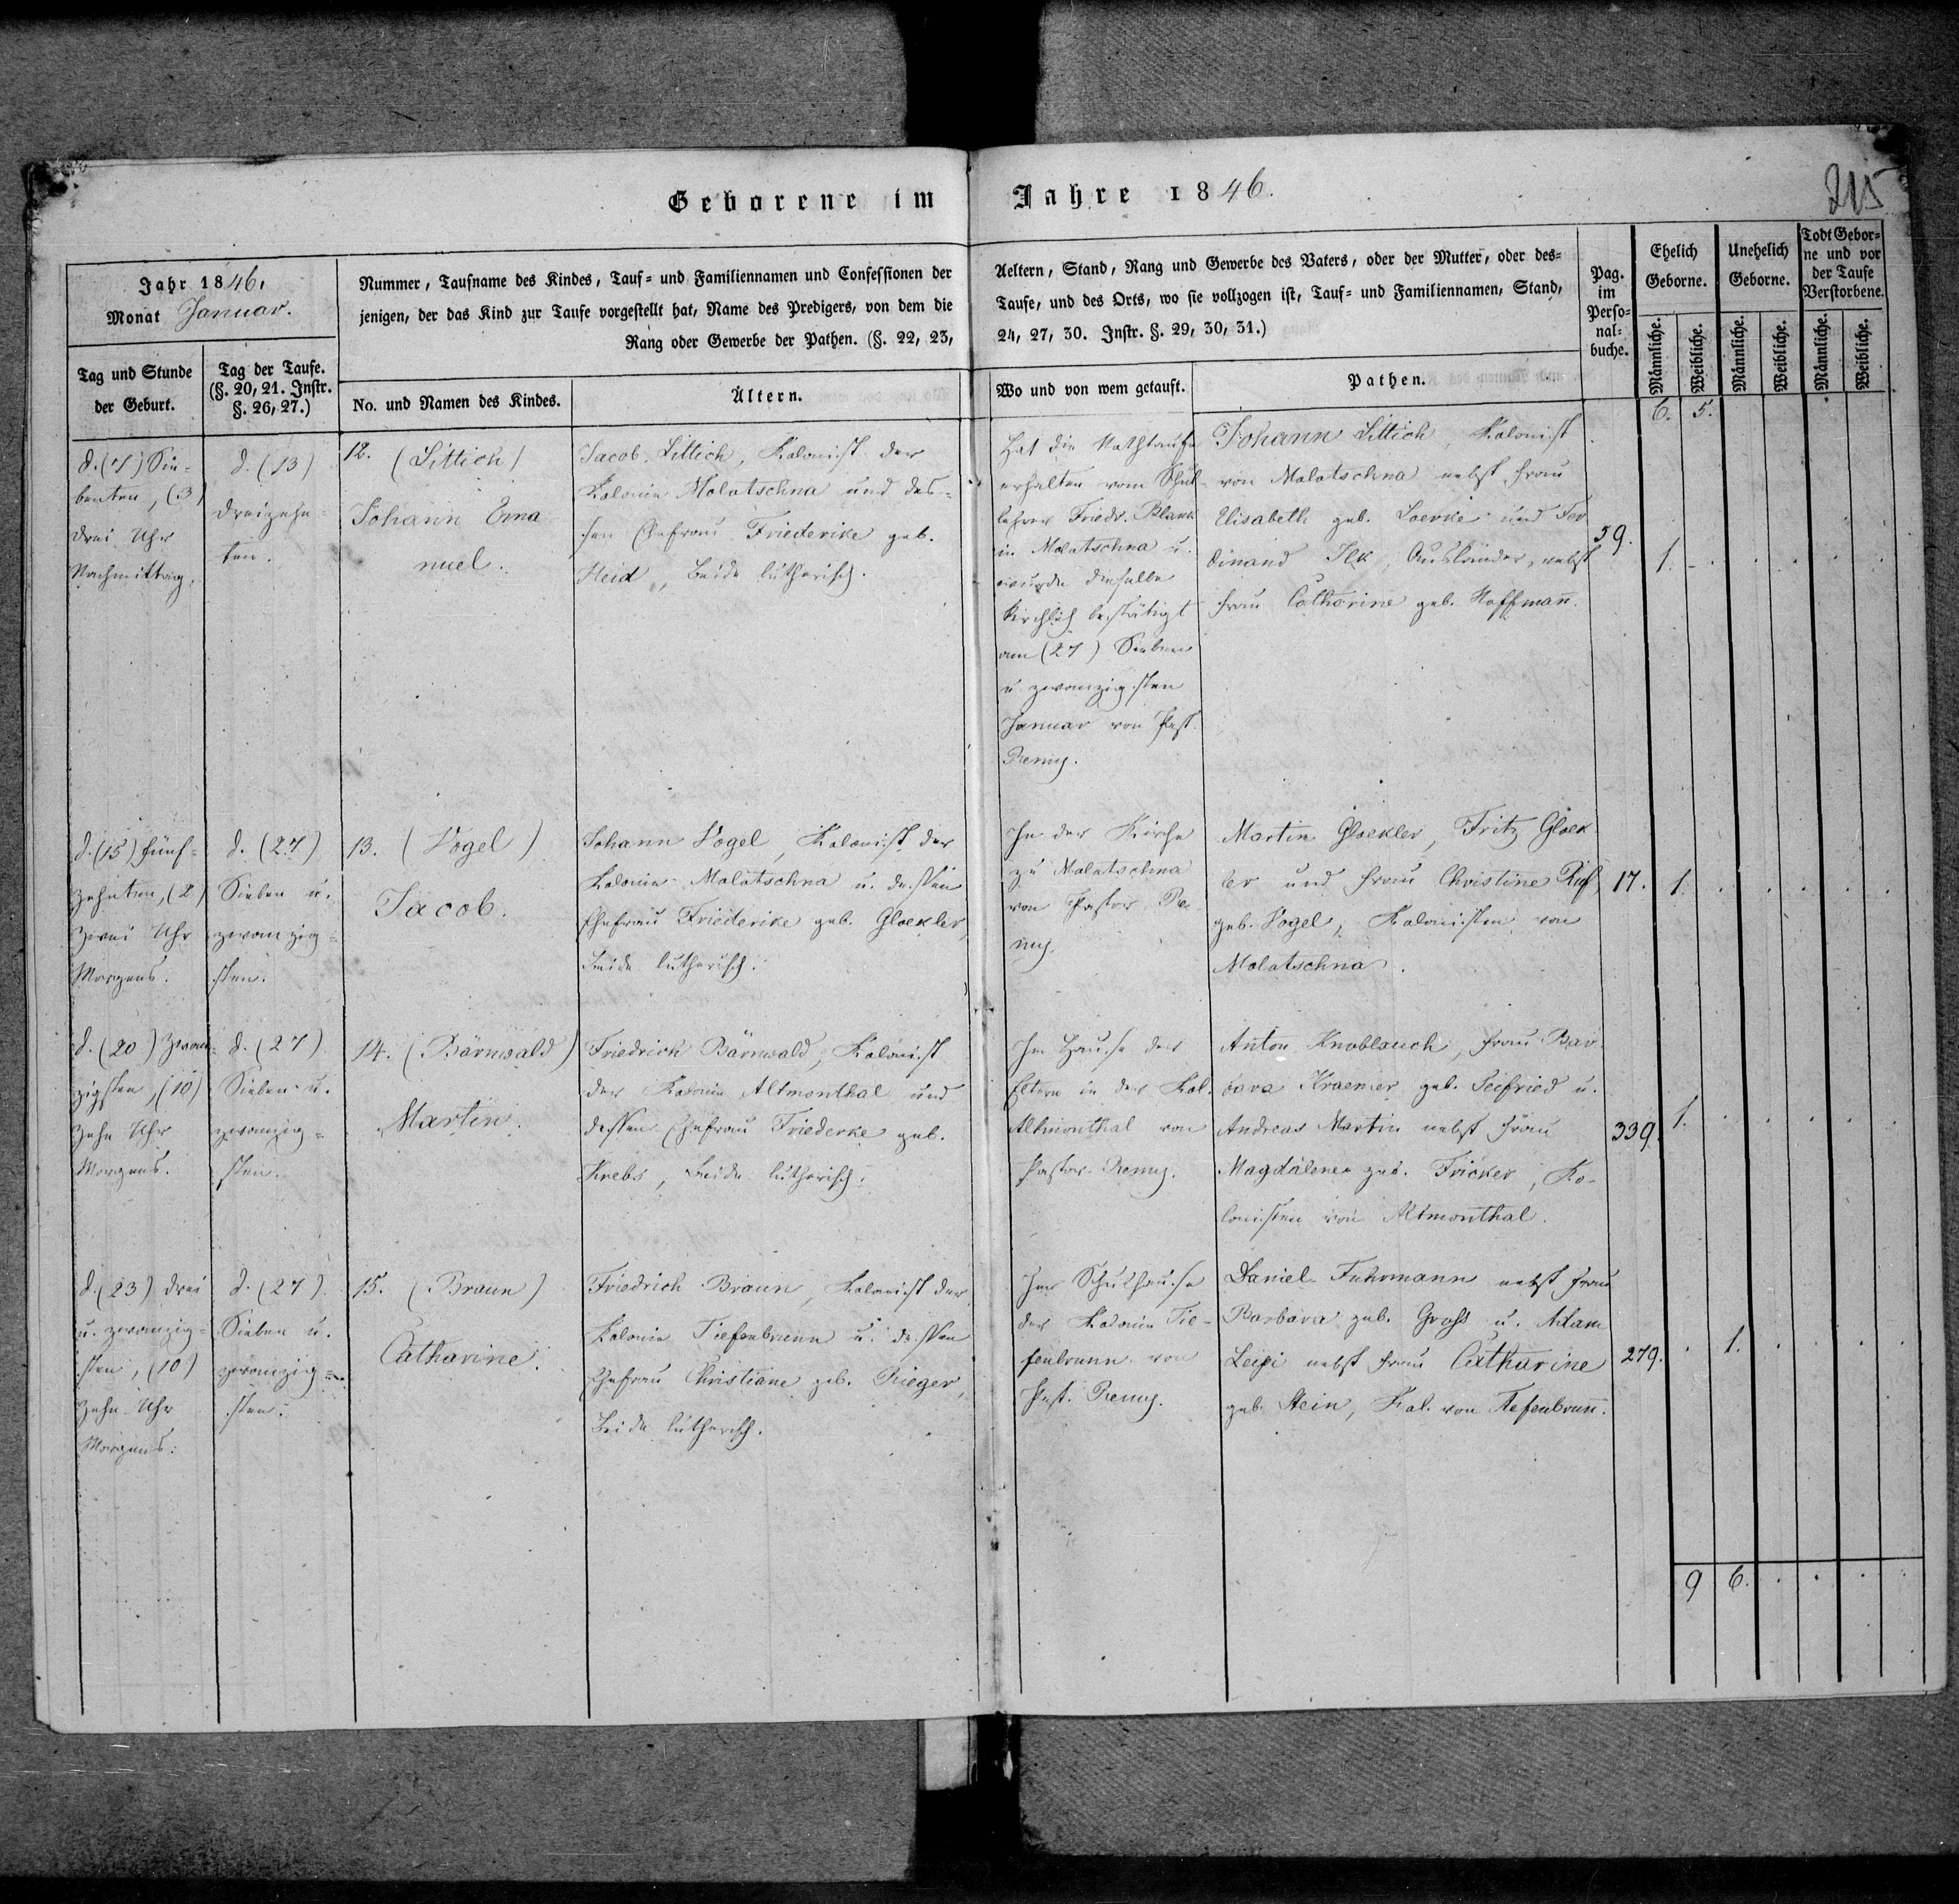 Geborene im Jahre 1846.
215
Jahr 1846.
Monat Januar.
Nummer, Taufname des Kindes, Tauf= und Familiennamen und Confessionen der
jenigen, der das Kind zur Taufe vorgestellt hat, Name des Predigers, von dem die
Rang oder Gewerbe der Pathen. (§. 22, 23,
Aeltern, Stand, Rang und Gewerbe des Vaters, oder der Mutter, oder des=
Taufe, und des Orts, wo sie vollzogen ist, Tauf= und Familiennamen, Stand,
24, 27, 30. Instr. §. 29, 30, 31.)
Pag.
im
Perso=
nal=
buche.
Ehelich
Geborne.
Unehelich
Geborne.
Todt Gebor=
ne und vor
der Taufe
Verstorbene.
Tag und Stunde
der Geburt.
Tag der Taufe.
(§. 20, 21. Instr.
§. 26, 27.)
No. und Namen des Kindes.
Ältern.
Wo und von wem getauft.
Pathen.
Männliche.
Weibliche.
Männliche.
Weibliche.
Männliche.
Weibliche.
6. 5.
d. (7) Sie=
benten, (3)
drei Uhr
Nachmittag.
d. (13)
dreizehn=
ten.
12. (Littich)
Johann Ema
nuel.
Jacob Littich, Kolonist der
Kolonie Molotschna und des=
sen Ehefrau Friederike geb.
Heid, beide lutherisch.
Hat die Nothtaufe
erhalten vom Schul=
lehrer Friedr. Blank
in Molotschna u.
wurde dieselbe
kirchlich bestätigt
am (27) Sieben
u. zwanzigsten
Januar von Past.
Remy.
Johann Littich, Kolonist
von Molotschna nebst Frau
Elisabeth geb. Loerke und Fer
dinand Ilk, Ausländer, nebst
Frau Catharine geb. Hoffmann.
59.
1.
d. (15) fünf=
zehnten, (2)
zwei Uhr
Morgens.
d. (27)
Sieben u.
zwanzig=
sten.
13. (Vogel)
Jacob.
Johann Vogel, Kolonist der
Kolonie Molotschna u. dessen
Ehefrau Friederike geb. Gloekler,
beide lutherisch.
In der Kirche
zu Molotschna
von Pastor Re=
my.
Martin Gloekler, Fritz Gloek
ler und Frau Christine
geb. Vogel, Kolonisten von
Molotschna.
17.
1.
d. (20) zwan=
zigsten, (10)
zehn Uhr
Morgens.
d. (27)
Sieben u.
zwanzig=
sten.
14. (Bärnwald)
Martin.
Friedrich Bärnwald, Kolonist
der Kolonie Altmonthal und
dessen Ehefrau Friederke geb.
Krebs, beide lutherisch.
Im Hause der
Eltern in der Kol.
Altmonthal von
Pastor Remy.
Anton Knoblauch, Frau Bar
bara Kraemer geb. Seifried u.
Andreas Martin nebst Frau
Magdalene geb. Fricker, Ko=
lonisten von Altmonthal.
339.
1.
d. (23) drei
u. zwanzig=
sten, (10)
zehn Uhr
Morgens.
d. (27)
Sieben u.
zwanzig=
sten.
15. (Braun)
Catharine.
Friedrich Braun, Kolonist der
Kolonie Tiefenbrunn u. dessen
Ehefrau Christiane geb. Rieger,
beide lutherisch.
Im Schulhause
der Kolonie Tie=
fenbrunn von
Past. Remy.
Daniel Fuhrmann nebst Frau
Barbara geb. Groß u. Adam
nebst Frau Catharine
geb. Stein, Kol. von Tiefenbrunn.
279.
1.
9 6.